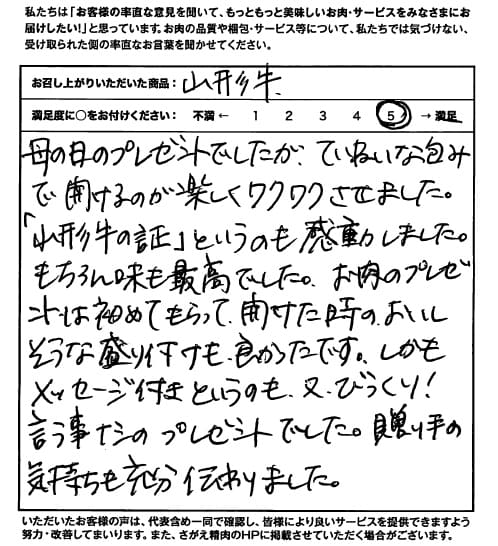 私たちは「お客様の率直な意見を聞いて、もっともっと美味しいお肉・サービスをみなさまにお
届けしたい!」と思っています。お肉の品質や梱包・サービス等について、私たちでは気づけない、
受け取られた側の率直なお言葉を聞かせてください。
お召し上がりいただいた商品: 山形牛
満足度に○をお付けください: 不満 ← 1 2 3 4 5 → 満足
母の日のプレゼントでしたが、ていねいな包み
で開けるのが楽しくワクワクさせました。
「山形牛の証」というのも感動しました。
もちろん味も最高でした。お肉のプレゼ
ントは初めてもらって、開けた時の、おいし
そうな盛り付けも、良かったです。しかも
メッセージ付きというのも、又、びっくり!
言う事ナシのプレゼントでした。贈り手の
気持ちも充分伝わりました。
いただいたお客様の声は、代表含め一同で確認し、皆様により良いサービスを提供できますよう
努力・改善してまいります。また、さがえ精肉のHPに掲載させていただく場合がございます。